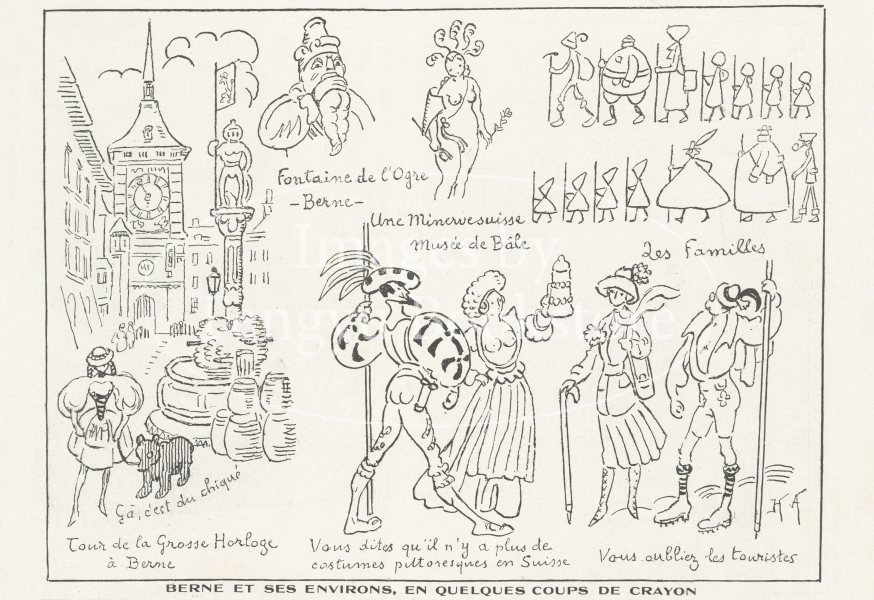 Fontaine de l'Ogre
-Berne-
Une Minerve suisse
Musée de Bâle
Les Familles
Çà, c'est du chiqué
Tour de la Grosse Horloge
à Berne
Vous dites qu'il n'y a plus de
costumes pittoresques en Suisse
Vous oubliez les touristes
BERNE ET SES ENVIRONS, EN QUELQUES COUPS DE CRAYON
Images by